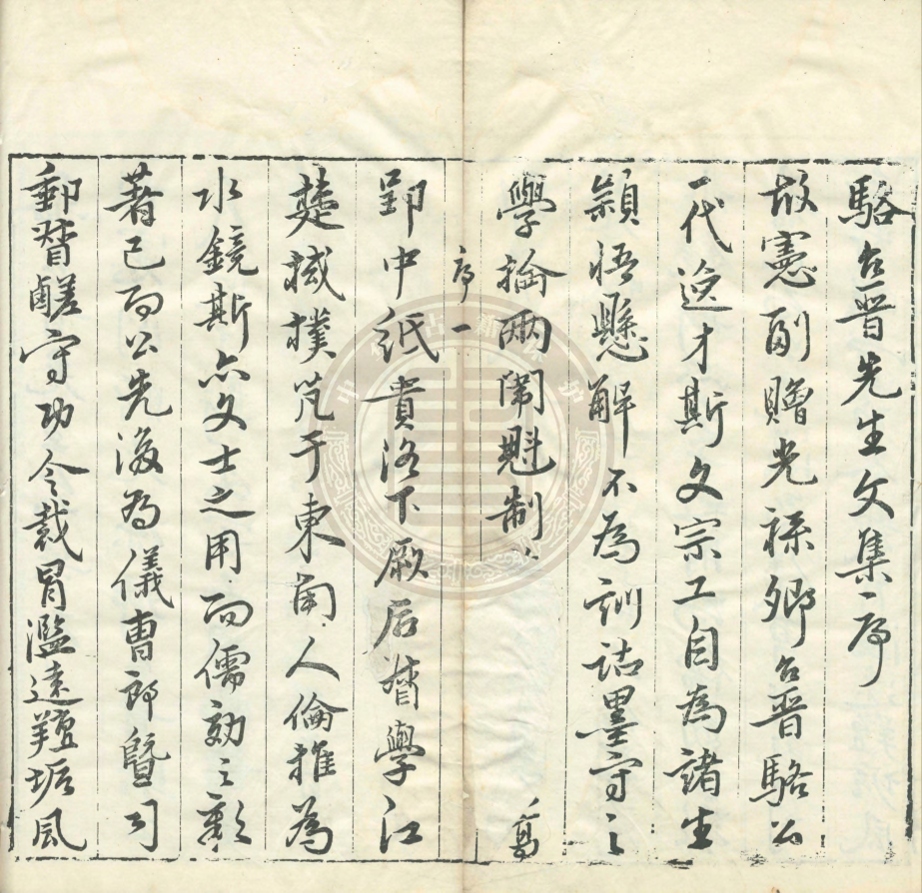 駱台晉先生文集序
故憲副贈光祿卿台晉駱公
一代逸才斯文宗工自為諸生
穎悟懸解不為訓詁墨守之
學掄兩闈魁制
序一
郢中紙貴洛下厥后督學江
楚棫樸芃于東南人倫推為
水鏡斯亦文士之用而儒効之彰
著已而公先後為儀曹郎暨司
郵督鹺守功令裁冒濫遠羶垢風